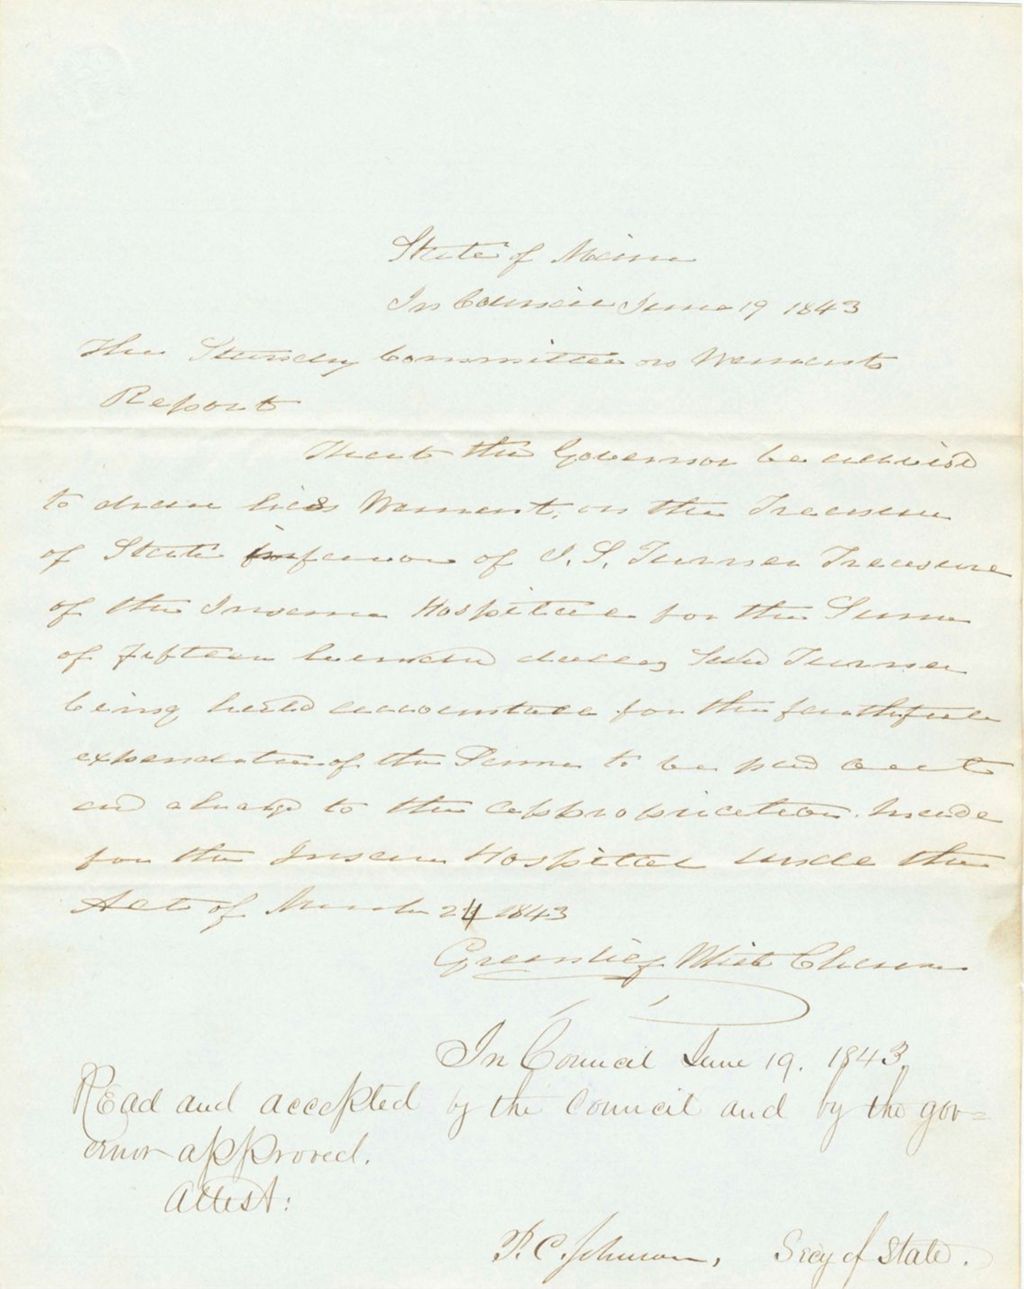 State of Maine
In Council June 19 1843
The Standing Committee on Warrants
Report
That the Governor be advised
to draw his Warrant, on the Treasurer
of State in favour of J. S. Turner Treasurer
of the Insane Hospital for the Sum
of fifteen hundred dollars, Said Turner
being held accountable for the faithfull
expendature of the Same to be paid out
and charged to the appropriation made
for the Insane Hospital under the
Act of March 24 1843
Greenlief White Chairman
In Council June 19. 1843.
Read and accepted by the Council and by the gov=
ernor approved.
Attest:
P. C. Johnson, Secy of State.